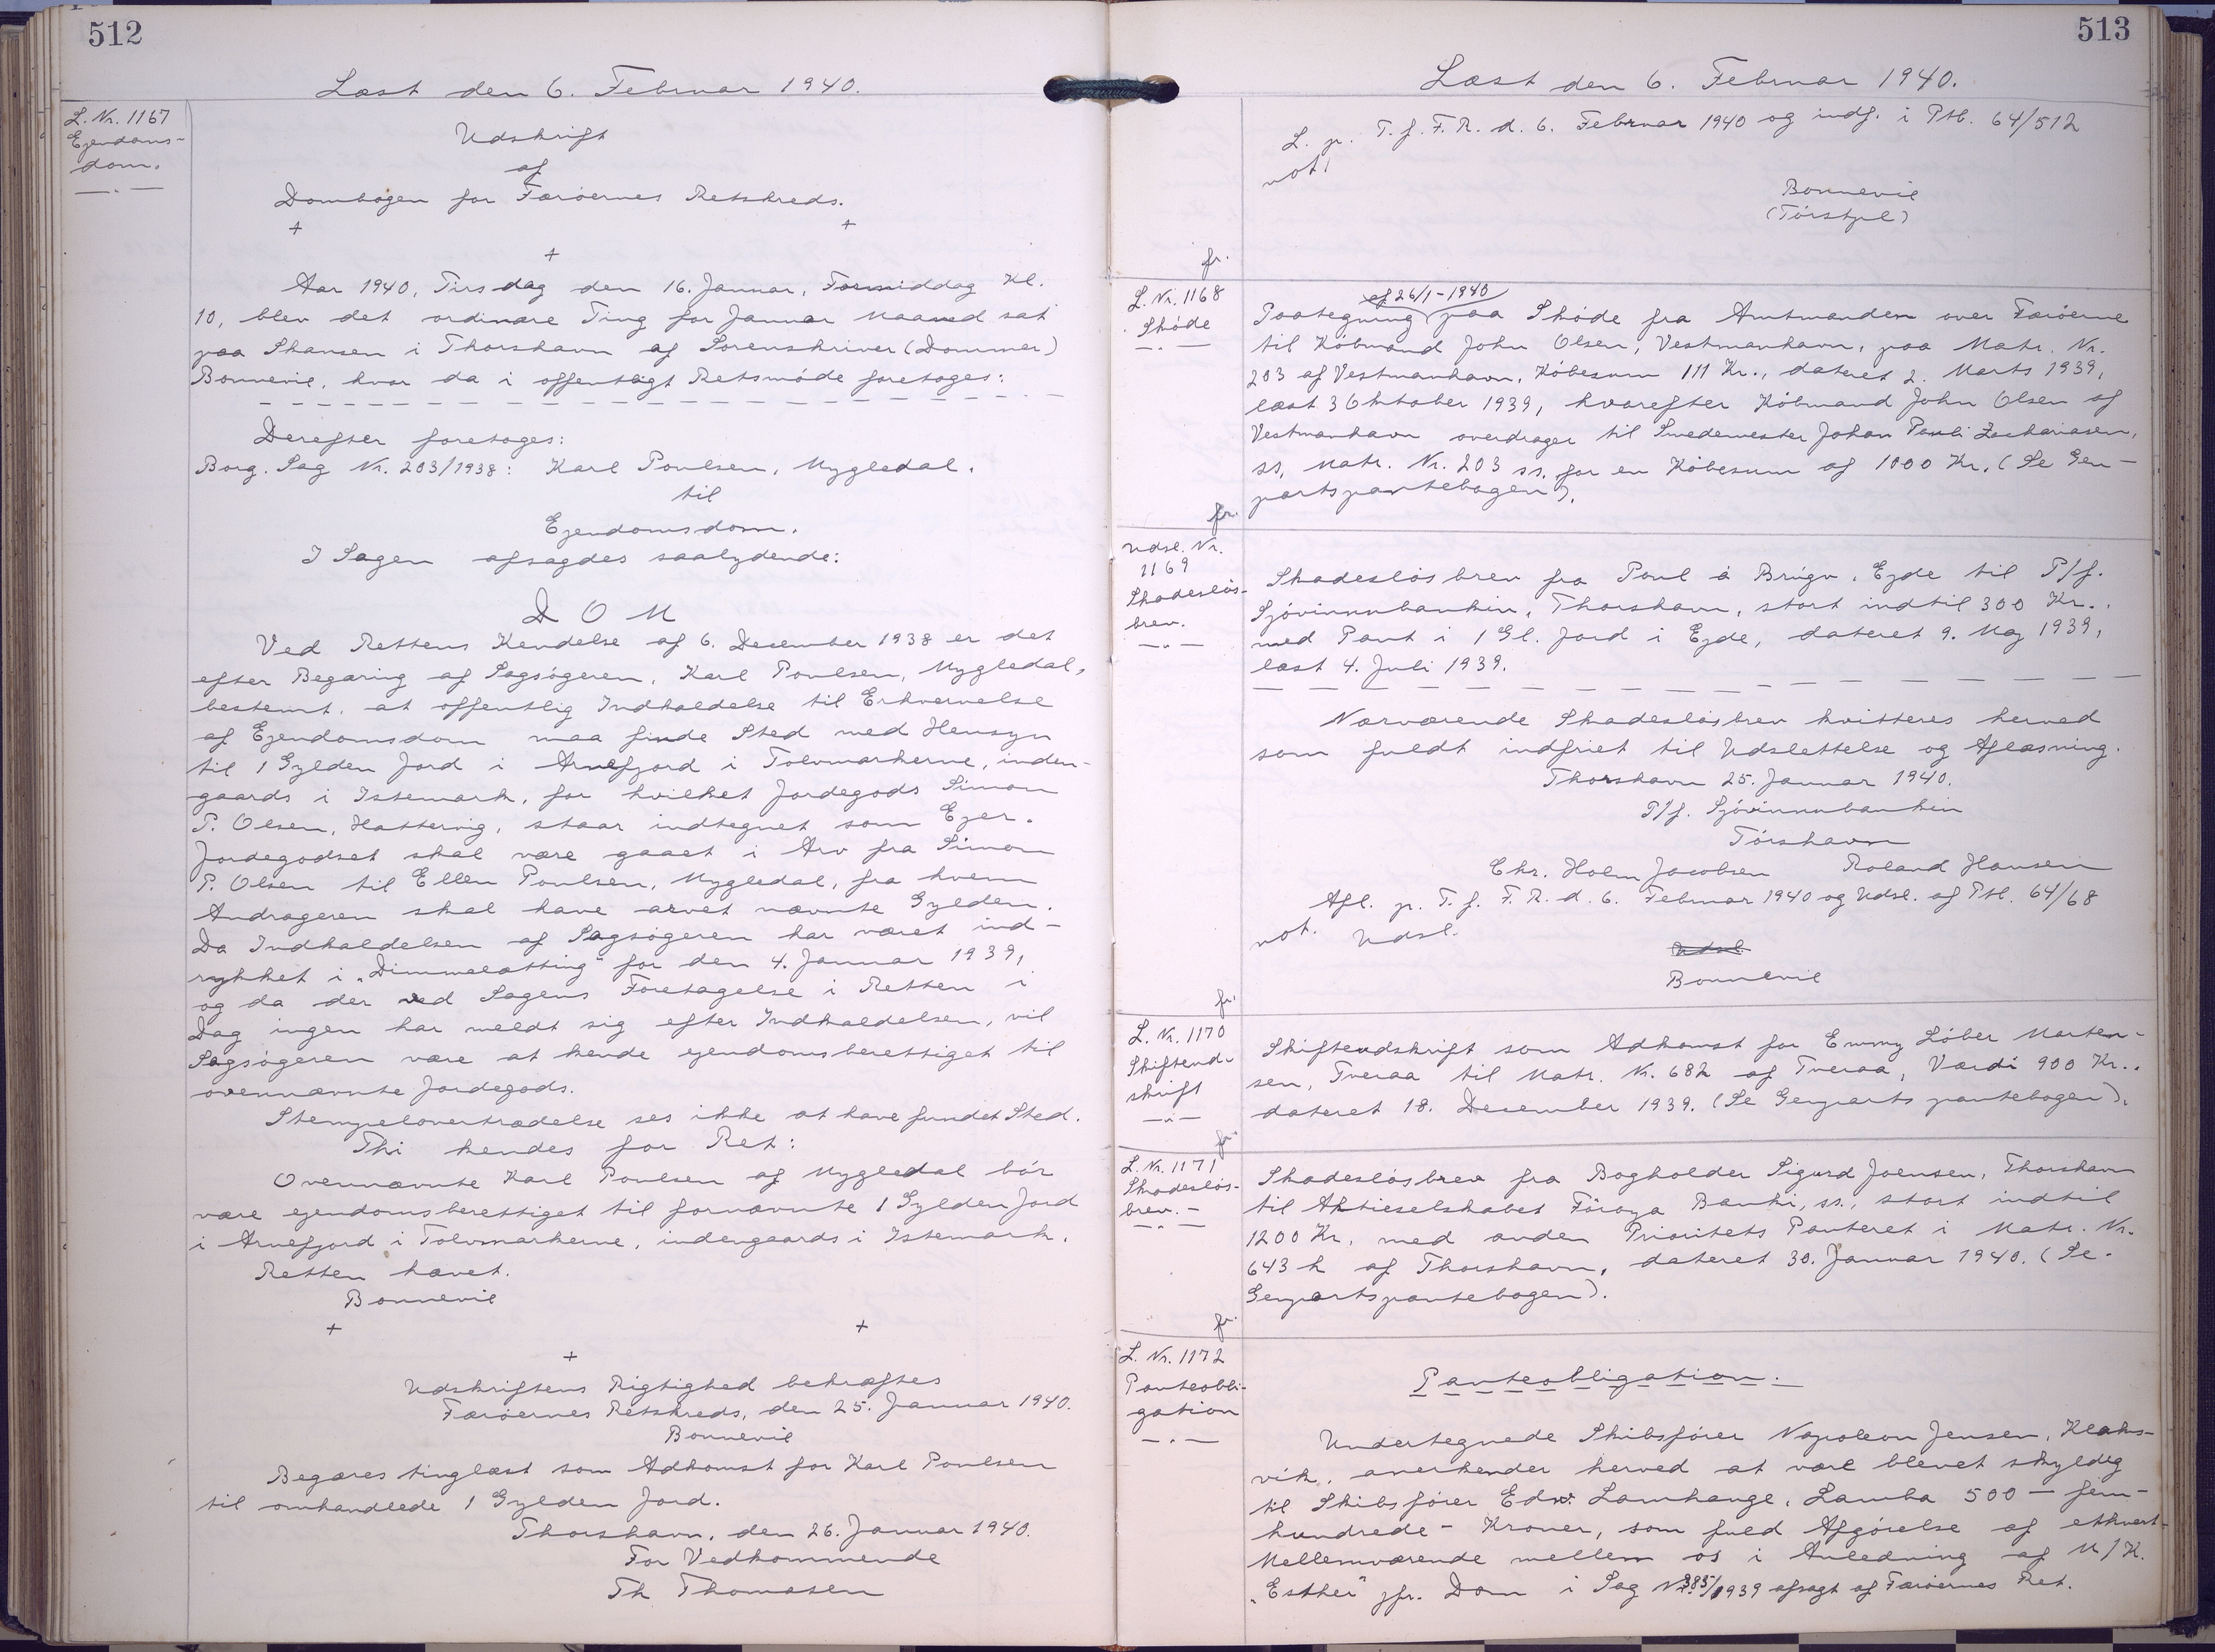 512
Læst den 6. Februar 1940.
L. Nr. 1167
Ejendoms-
dom.
Udskrift
af
Dombogen for Færøernes Retskreds.
Aar 1940, Tirsdag den 16. Januar, Formiddag Kl.
10, blev det ordinære Ting for Januar Maaned sat
paa Skansen i Thorshavn af Sorenskriver (Dommer)
Bonnevie, hvor da i offentligt Retsmøde foretoges:
Derefter foretoges:
Borg. Sag Nr. 203/1938: Karl Poulsen, Mygledal.
til
Ejendomsdom.
I Sagen afsagdes saalydende:
DOM
Ved Rettens Kendelse af 6. December 1938 er det
efter Begæring af Sagsøgeren, Karl Poulsen, Mygledal,
bestemt, at offentlig Indkaldelse til Erhvervelse
af Ejendomsdom maa finde Sted med Hensyn
til 1 Gylden Jord i Arnefjord i Tolvmarkerne, inden-
gaards i Istemark, for hvilket Jordegods Simon
P. Olsen, Hattervig, staar indtegnet som Ejer.
Jordegodset skal være gaaet i Arv fra Simon
P. Olsen til Ellen Poulsen, Mygledal, fra hvem
Andrageren skal have arvet nævnte Gylden.
Da Indkaldelsen af Sagsøgeren har været ind-
rykket i "Dimmalætting" for den 4. Januar 1939,
og da der ved Sagens Foretagelse i Retten i
Dag ingen har meldt sig efter Indkaldelsen, vil
Sagsøgeren være at kende ejendomsberettiget til
ovennævnte Jordegods.
Stempelovertrædelse ses ikke at have fundet Sted.
Thi kendes for Ret:
Ovennævnte Karl Poulsen af Mygledal bør
være ejendomsberettiget til fornævnte 1 Gylden Jord
i Arnefjord i Tolvmarkerne, indengaards i Istemark.
Retten hævet.
Bonnevie
Udskriftens Rigtighed bekræftes
Færøernes Retskreds, den 25. Januar 1940.
Bonnevie
Begæres tinglæst som Adkomst for Karl Poulsen
til omhandlede 1 Gylden Jord.
Thorshavn, den 26. Januar 1940.
For Vedkommende
Th Thomasen
513
Læst den 6. Februar 1940.
L. p. T. f. F. R. d. 6. Februar 1940 og indf. i Ptb. 64/512
not!
Bonnevie
(Tórstpl)
fr.
L. Nr. 1168
Skøde
af 26/1-1940
Paategning paa Skøde fra Amtmanden over Færøerne
til Købmand John Olsen, Vestmanhavn, paa Matr. Nr.
203 af Vestmanhavn, Købesum 111 Kr., dateret 2. Marts 1939,
læst 3 Oktober 1939, hvorefter Købmand John Olsen af
Vestmanhavn overdrager til Smedemester Johan Pauli Zachariasen,
ss, Matr. Nr. 203 ss. for en Købesum af 1000 Kr. (Se Gen-
partspantebogen).
fr.
Udsl. Nr.
1169
Skadesløs-
brev.
Skadesløsbrev fra Poul á Brúgv, Ejde til P/f.
Sjóvinnubankin, Thorshavn, stort indtil 300 Kr.,
med Pant i 1 Gl. Jord i Ejde, dateret 9. Maj 1939,
læst 4. Juli 1939.
Nærværende Skadesløsbrev kvitteres herved
som fuldt indfriet til Udslettelse og Aflæsning.
Thorshavn 25. Januar 1940.
P/f. Sjóvinnubankin
Tórshavn
Chr. Holm Jacobsen Roland Hansen
Afl. p. T. f. F. R. d. 6. Februar 1940 og Udsl. af Ptb. 64/68
not. Udsl.
Udsl.
Bonnevie
fr.
L. Nr. 1170
Skifteud-
skrift
Skifteudskrift som Adkomst for Emmy Løber Morten-
sen, Tveraa til Matr. Nr. 682 af Tveraa, Værdi 900 Kr.,
dateret 18. December 1939. (Se Genparts pantebogen).
fr.
L. Nr. 1171
Skadesløs-
brev.-
Skadesløsbrev fra Bogholder Sigurd Joensen, Thorshavn
til Aktieselskabet Föroya Banki, ss., stort indtil
1200 Kr. med anden Prioritets Panteret i Matr. Nr.
643 h af Thorshavn, dateret 30. Januar 1940. (Se
Genpartspantebogen).
fr.
L. Nr. 1172
Panteobli-
gation
Panteobligation.
Undertegnede Skibsfører Napoleon Jensen, Klaks-
vik, anerkender herved at være blevet skyldig
til Skibsfører Edw. Lamhauge, Lamba 500 - fem-
hundrede - Kroner, som fuld Afgørelse af ethvert
Mellemværende mellem os i Anledning af M/K.
"Esther" jfr. Dom i Sag Nr. 385/1939 afsagt af Færøernes Ret.